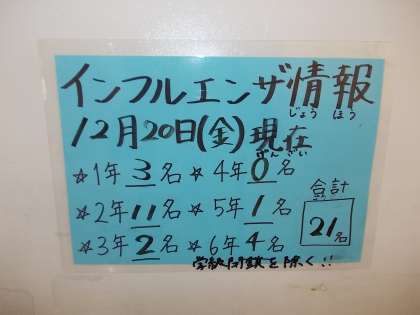 インフルエンザ情報
じょう ほう
12月20日(金)現在
げんざい
☆1年 3名 ☆4年 0名
☆2年 11名 ☆5年 1名
☆3年 2名 ☆6年 4名
合計
21名
学級閉鎖を除く!!